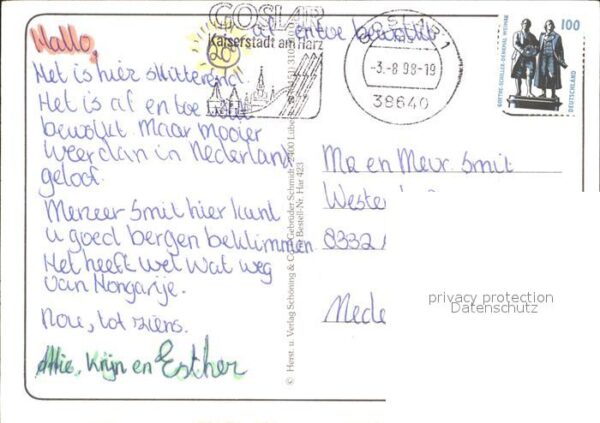 Hallo,
af en toe bewolkt
Het is hier schitterend.
Het is af en toe
bewolkt. Maar mooier
weer dan in Nederland
geloof.
Meneer Smit hier kunt
u goed bergen beklimmen
Het heeft wel wat weg
van Hongarije.
Nou, tot ziens.
Attie, Krijn en Esther
GOSLAR
Kaiserstadt am Harz
GOSLAR 1
-3.-8.98-19
38640
100
GOETHE-SCHILLER-DENKMAL WEIMAR
DEUTSCHLAND
© Horst. u. Verlag Schöning & Co. Gebrüder Schmidt, 2400 Lübeck
Bestell-Nr. Har 423
Ma en Mevr. Smit
Weste
8332
Nede
privacy protection
Datenschutz